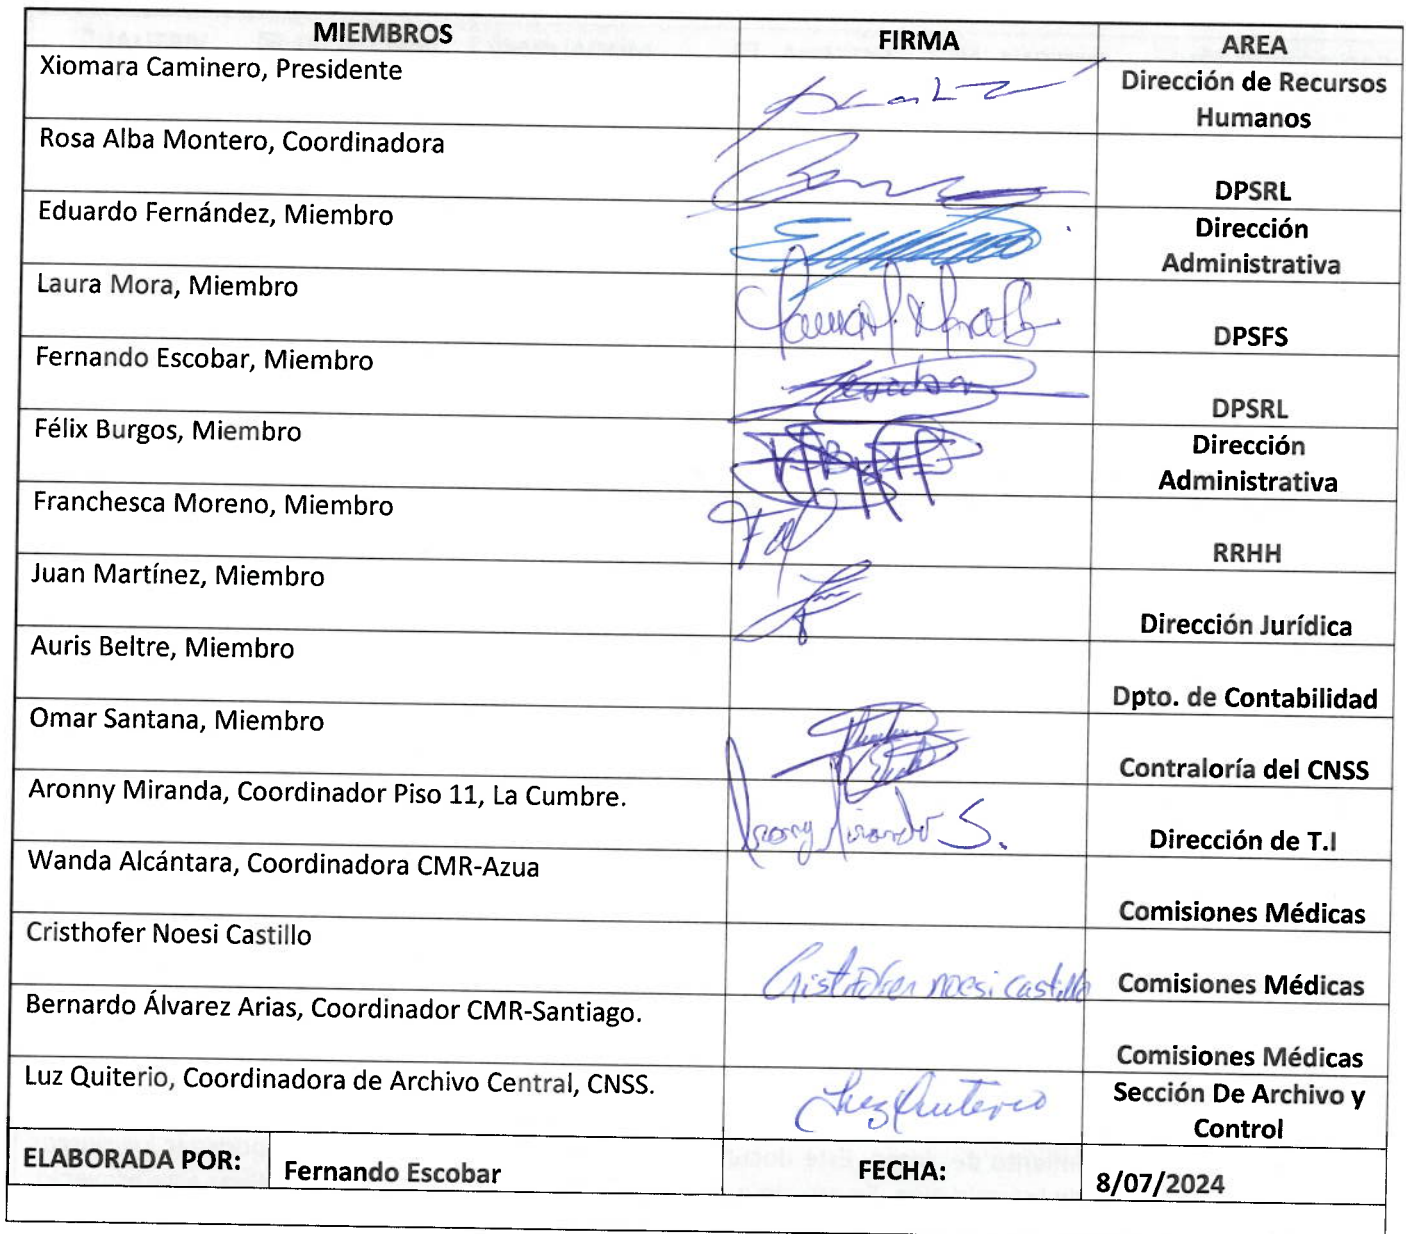 MIEMBROS FIRMA AREA
Xiomara Caminero, Presidente Dirección de Recursos
Humanos
Rosa Alba Montero, Coordinadora
DPSRL
Eduardo Fernández, Miembro Dirección
Administrativa
Laura Mora, Miembro
DPSFS
Fernando Escobar, Miembro
Escobar
DPSRL
Félix Burgos, Miembro Dirección
Administrativa
Franchesca Moreno, Miembro
RRHH
Juan Martínez, Miembro
Dirección Jurídica
Auris Beltre, Miembro
Dpto. de Contabilidad
Omar Santana, Miembro
Contraloría del CNSS
Aronny Miranda, Coordinador Piso 11, La Cumbre.
Aronny Miranda S.
Dirección de T.I
Wanda Alcántara, Coordinadora CMR-Azua
Comisiones Médicas
Cristhofer Noesi Castillo
Cristhofer noesi castillo Comisiones Médicas
Bernardo Álvarez Arias, Coordinador CMR-Santiago.
Comisiones Médicas
Luz Quiterio, Coordinadora de Archivo Central, CNSS. Sección De Archivo y
Luz Quiterio Control
ELABORADA POR: Fernando Escobar FECHA: 8/07/2024